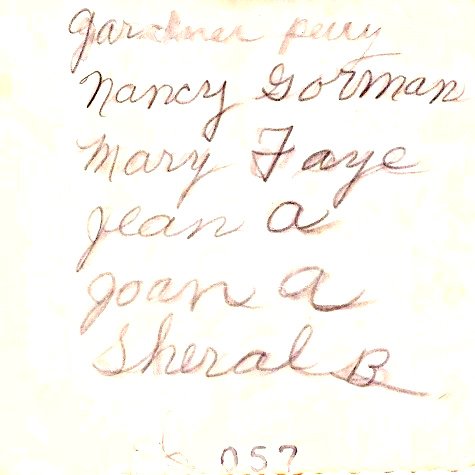 Gardner perry
Nancy Gorman
Mary Faye
Jean A
Joan A
Sheral B
057